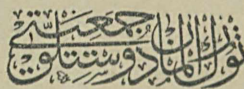 تورك آلمان دوستلق جمعيتى